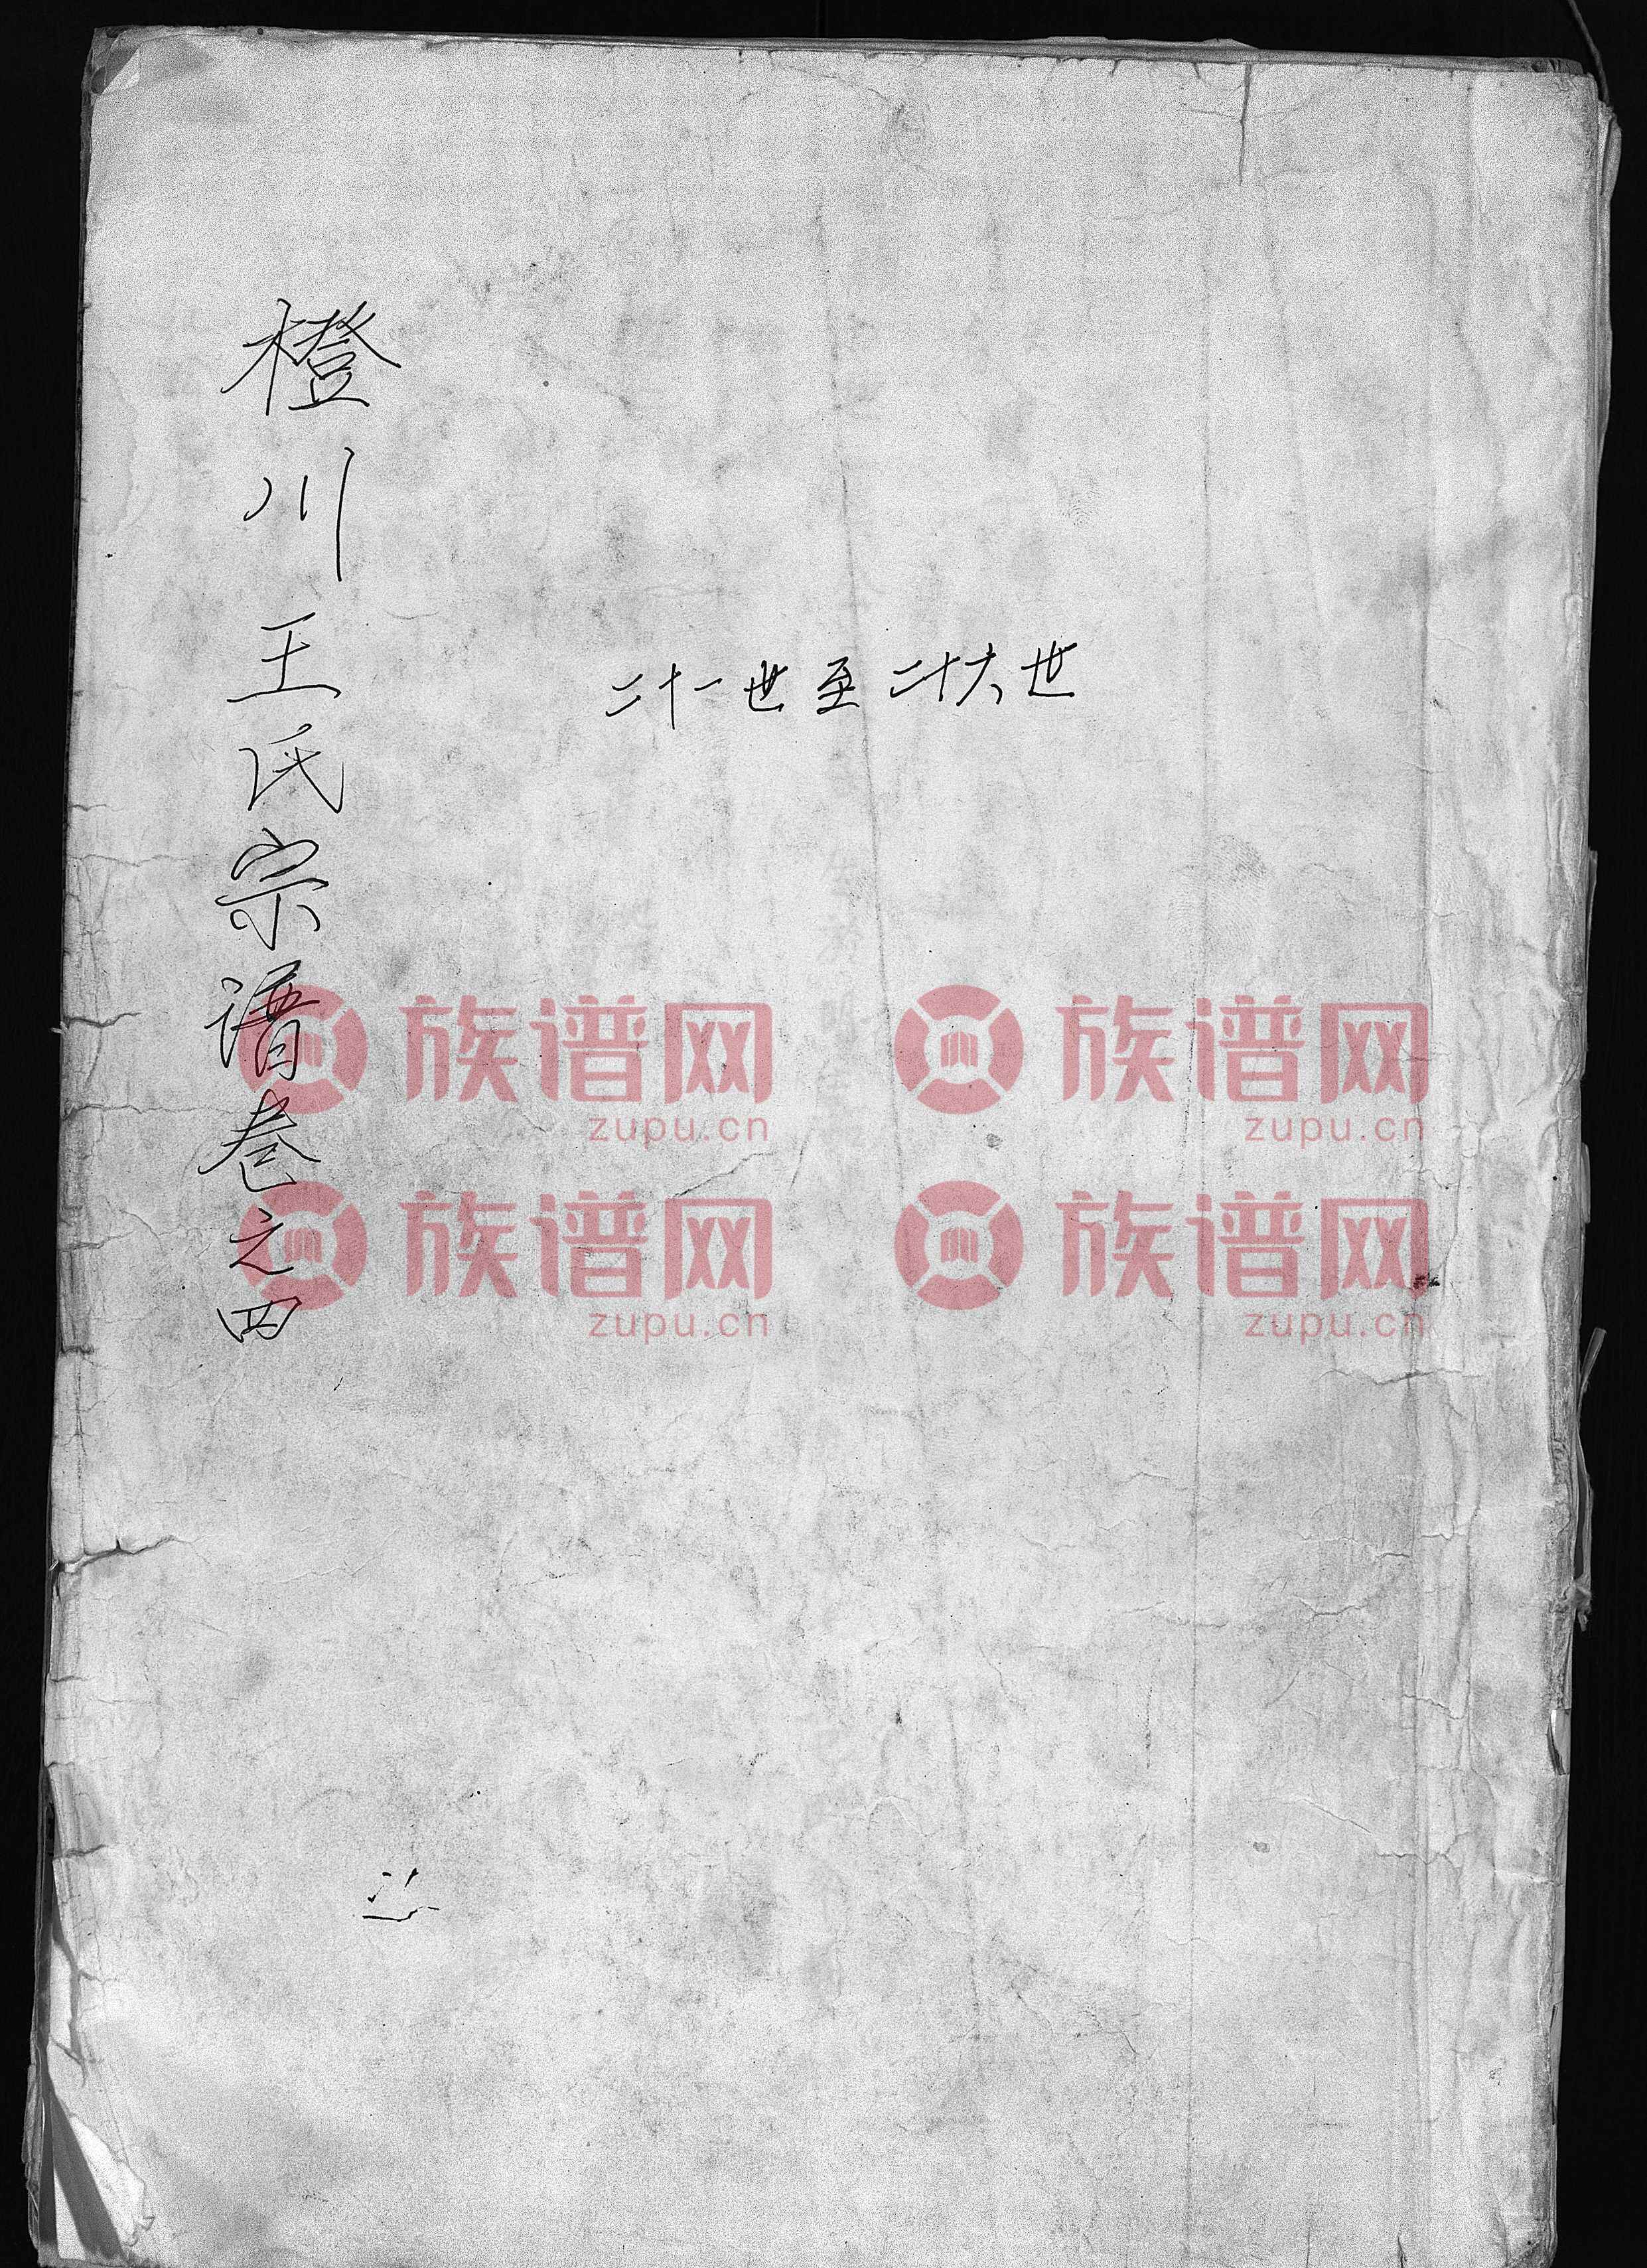 橙川王氏宗谱卷之四
二十一世至二十六世
族谱网 族谱网
zupu.cn zupu.cn
族谱网 族谱网
zupu.cn zupu.cn